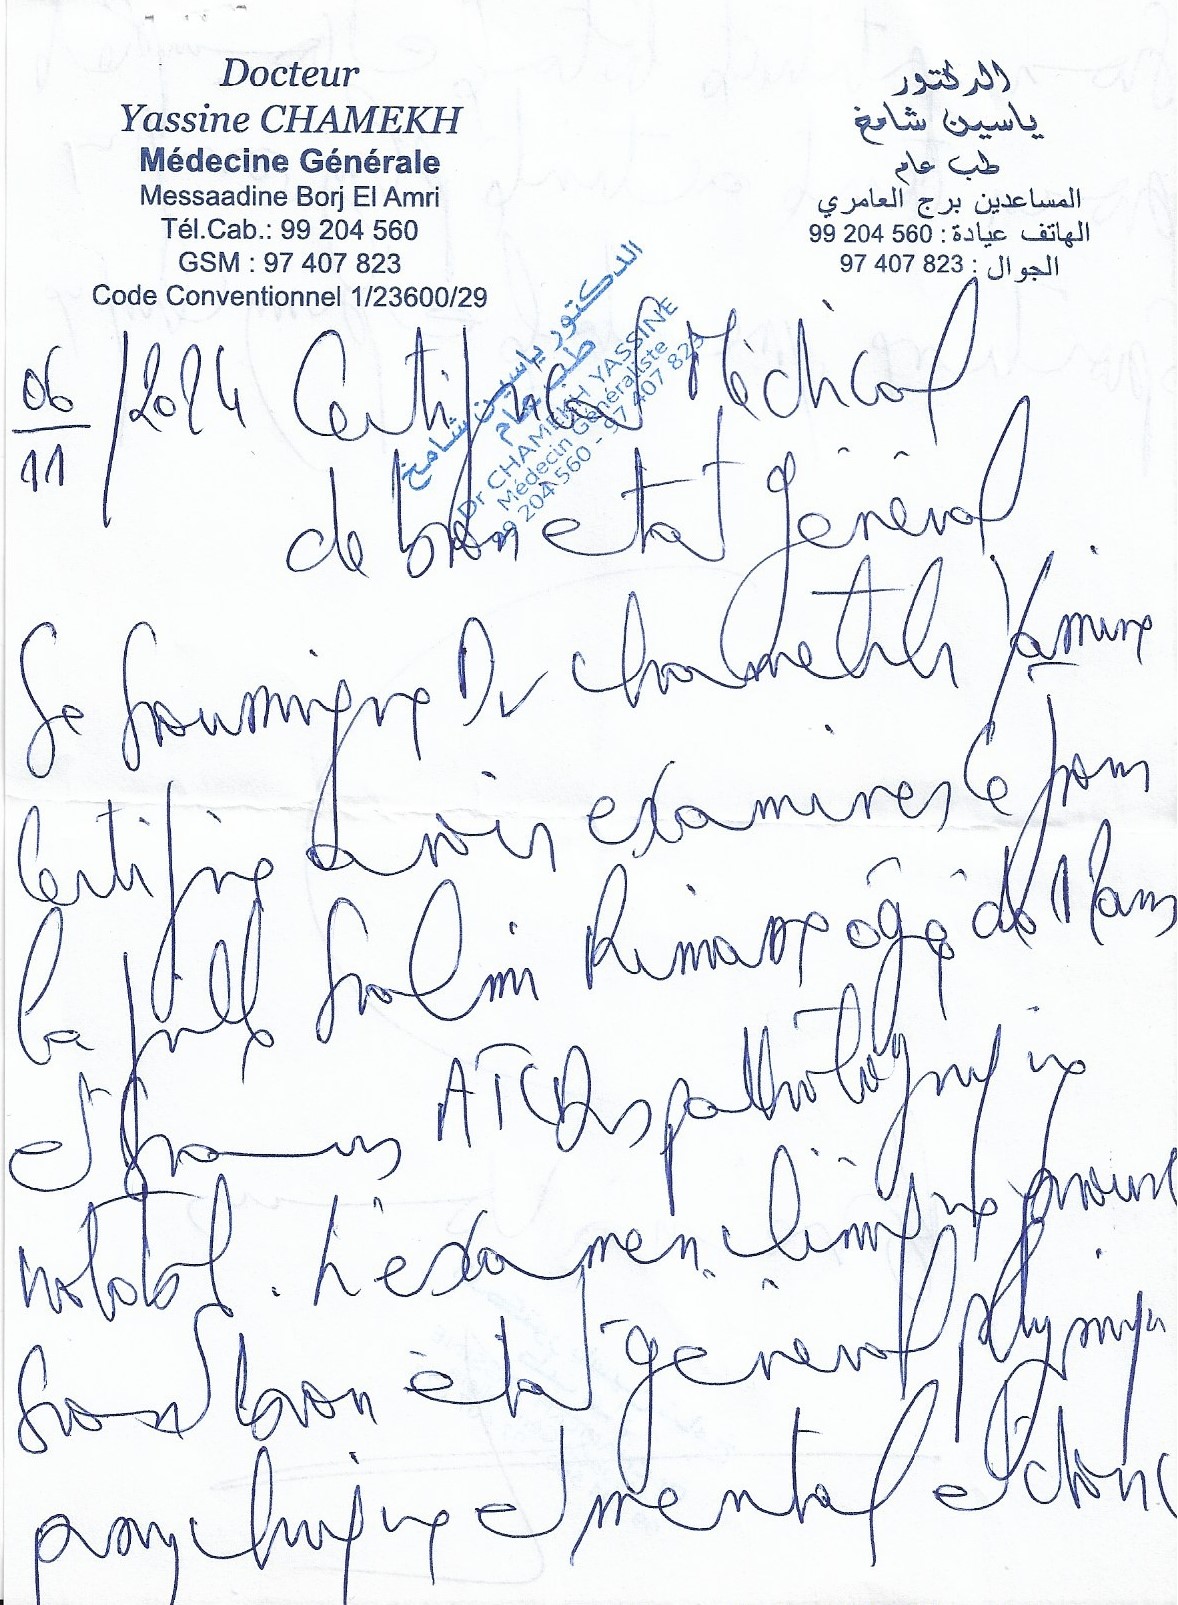 Docteur
Yassine CHAMEKH
Médecine Générale
Messaadine Borj El Amri
Tél.Cab.: 99 204 560
GSM : 97 407 823
Code Conventionnel 1/23600/29
الدكتور
ياسين شامخ
طب عام
المساعدين برج العامري
الهاتف عيادة : 560 204 99
الجوال : 823 407 97
الدكتور ياسين شامخ
طب عام
Dr CHAMEKH YASSINE
Médecin Généraliste
99 204 560 - 97 407 823
06/11/2024 Certificat Médical
de bon etat général
Je soussigne Dr chamekh Yassine
certifie avoir examiner ce jour
la fille Selmi âgé de ans
et sans ATCDs pathologique
notable. L'examen clinique trouve
son bon état général physique
psychique et mental et donc